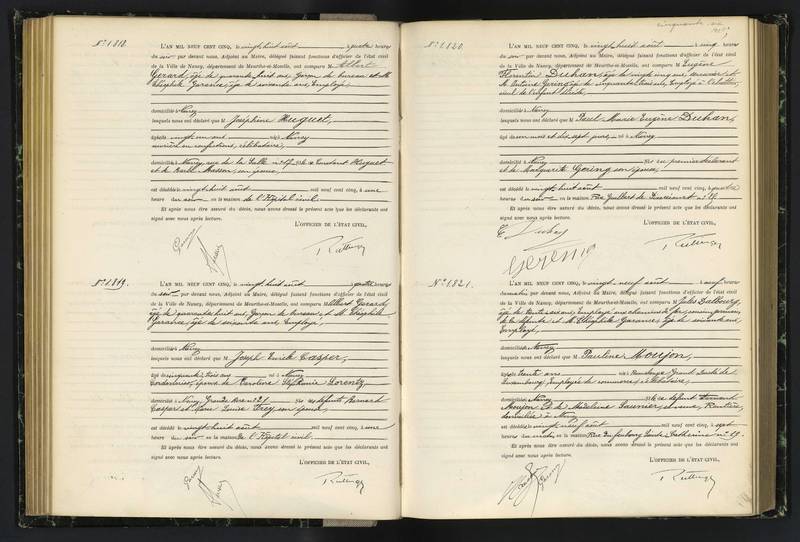 N° 1.818.
L'AN MIL NEUF CENT CINQ, le vingt huit août à quatre heures
du soir par devant nous, Adjoint au Maire, délégué faisant fonctions d'officier de l'état civil
de la Ville de Nancy, département de Meurthe-et-Moselle, ont comparu M Albert
Gérard, âgé de quarante huit ans, Garçon de bureau et M.
Théophile Garaudel, âgé de soixante ans, Employé,
domiciliés à Nancy
lesquels nous ont déclaré que M Joséphine Huguet,
âgée de vingt un ans né à Nancy
ouvrière en confections, célibataire,
domiciliée à Nancy, rue de la Salle n° 17 fille de Constant Huguet
et de Masson, son épouse
est décédée le vingt huit août mil neuf cent cinq, à une
heure du soir en la maison de l'Hôpital civil.
Et après nous être assuré du décès, nous avons dressé le présent acte que les déclarants ont
signé avec nous après lecture.
L'OFFICIER DE L'ÉTAT CIVIL,
N° 1.819.
L'AN MIL NEUF CENT CINQ, le vingt huit août à quatre heures
du soir par devant nous, Adjoint au Maire, délégué faisant fonctions d'officier de l'état civil
de la Ville de Nancy, département de Meurthe-et-Moselle, ont comparu M Albert Gérard,
âgé de quarante huit ans, Garçon de bureau et M. Théophile
âgé de soixante ans, Employé,
domiciliés à Nancy
lesquels nous ont déclaré que M Joseph Casper,
âgé de cinquante trois ans né à Nancy
Cordonnier, époux de Caroline Lorentz,
domicilié à Nancy, Grande Rue n° 21 fils de défunts Bernard
Casper et Marie Louise son épouse,
est décédé le vingt huit août mil neuf cent cinq, à une
heure du soir en la maison de l'Hôpital civil.
Et après nous être assuré du décès, nous avons dressé le présent acte que les déclarants ont
signé avec nous après lecture.
L'OFFICIER DE L'ÉTAT CIVIL,
N° 1.820.
L'AN MIL NEUF CENT CINQ, le vingt huit août à cinq heures
du soir par devant nous, Adjoint au Maire, délégué faisant fonctions d'officier de l'état civil
de la Ville de Nancy, département de Meurthe-et-Moselle, ont comparu M Eugène
Florentin Duhan, âgé de vingt cinq ans, et
M. Antoine âgé de cinquante trois ans, Employé
domiciliés à Nancy
lesquels nous ont déclaré que M Paul Marie Eugène Duhan,
âgé de un mois et dix sept jours, né à Nancy
domicilié à Nancy fils du premier déclarant
et de Marguerite son épouse,
est décédé le vingt huit août mil neuf cent cinq, à quatre
heures du soir en la maison Rue Guilbert de Pixérécourt n°
Et après nous être assuré du décès, nous avons dressé le présent acte que les déclarants ont
signé avec nous après lecture.
L'OFFICIER DE L'ÉTAT CIVIL,
E. Duhan
N° 1.821.
L'AN MIL NEUF CENT CINQ, le vingt neuf août à neuf heures
du matin par devant nous, Adjoint au Maire, délégué faisant fonctions d'officier de l'état civil
de la Ville de Nancy, département de Meurthe-et-Moselle, ont comparu M Jules
âgé de trente six ans, Employé aux chemins de fer, cousin germain
de la défunte et M. Théophile âgé de soixante ans
Employé,
domiciliés à Nancy
lesquels nous ont déclaré que M Pauline Moujon,
âgée de trente ans née à Grand Duché de
Luxembourg, Employée de commerce, célibataire,
domiciliée à Nancy fille de défunt
Moujon et de Madeleine sa veuve, Rentière,
domiciliée à Nancy
est décédée le vingt neuf août mil neuf cent cinq, à sept
heures du matin en la maison Rue du faubourg Sainte Catherine n° 19.
Et après nous être assuré du décès, nous avons dressé le présent acte que les déclarants ont
signé avec nous après lecture.
L'OFFICIER DE L'ÉTAT CIVIL,